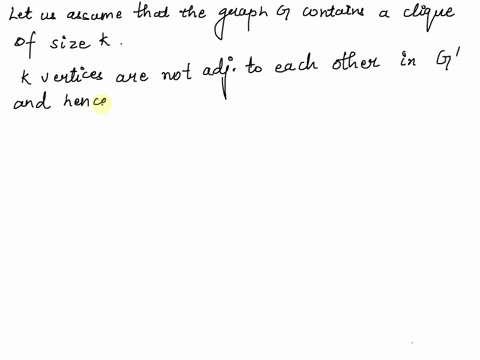 Let us assume that the graph G contains a clique
of size k.
k vertices are not adj. to each other in G'
and hence